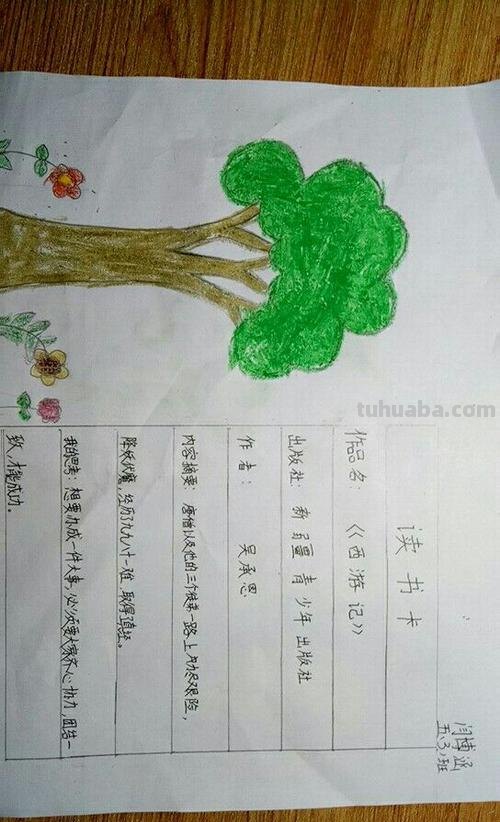 闫博涵
五、(3)班
读书卡
作品名：《西游记》
出版社：新疆青少年出版社
作者：吴承恩
内容摘要：唐僧以及他的三个徒弟一路上历尽艰险，
降妖伏魔，经历了九九八十一难，取得了真经。
我的思考：想要办成一件大事，必须要大家齐心协力，团结一
致，才能成功。
tuhuaba.com